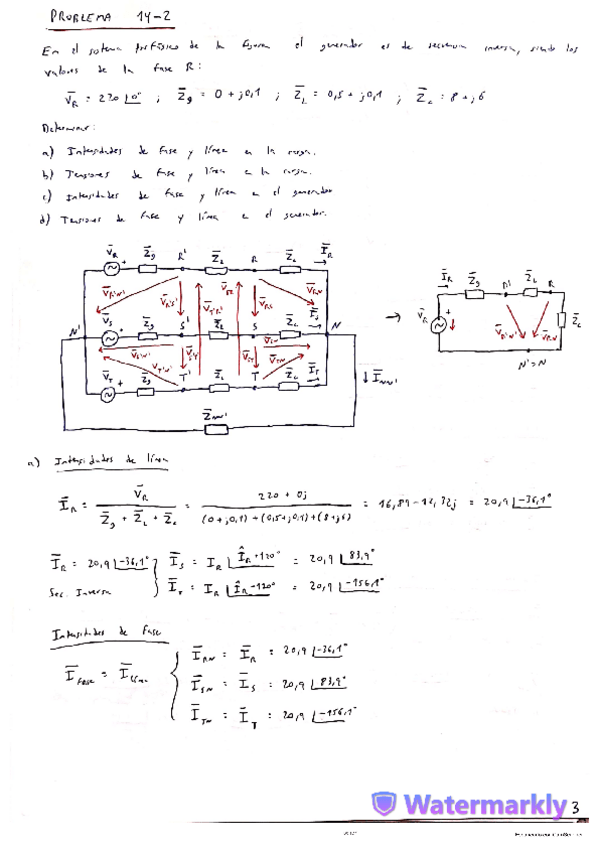 PROBLEMA 14-2
En el sistema trifásico de la figura el generador es de secuencia inversa, siendo los
valores de la fase R:
V̅R = 220 |0° ; Z̅g = 0 + j0,1 ; Z̅L = 0,5 + j0,1 ; Z̅c = 8 + j6
Determinar:
a) Intensidades de fase y línea en la carga.
b) Tensiones de fase y línea en la carga.
c) Intensidades de fase y línea en el generador
d) Tensiones de fase y línea en el generador.
V̅R Z̅g R' Z̅L R Z̅c I̅R
V̅R'N' V̅R'S' V̅RS V̅RN
N' V̅S Z̅g S' Z̅L S Z̅c N
V̅T Z̅g T' Z̅L T Z̅c I̅T
I̅NN'
Z̅NN'
I̅R Z̅g R' Z̅L R
V̅R V̅R'N' V̅RN Z̅c
N'=N
a) Intensidades de línea
I̅R = V̅R / (Z̅g + Z̅L + Z̅c) = (220 + 0j) / ((0+j0,1)+(0,5+j0,1)+(8+j6)) = 16,89-12,32j = 20,9 |-36,1°
I̅R = 20,9 |-36,1° } I̅S = IR |ÎR+120° = 20,9 |83,9°
Sec. Inversa I̅T = IR |ÎR-120° = 20,9 |-156,1°
Intensidades de fase
I̅fase = I̅línea
I̅RN = I̅R = 20,9 |-36,1°
I̅SN = I̅S = 20,9 |83,9°
I̅TN = I̅T = 20,9 |-156,1°
Watermarkly
3